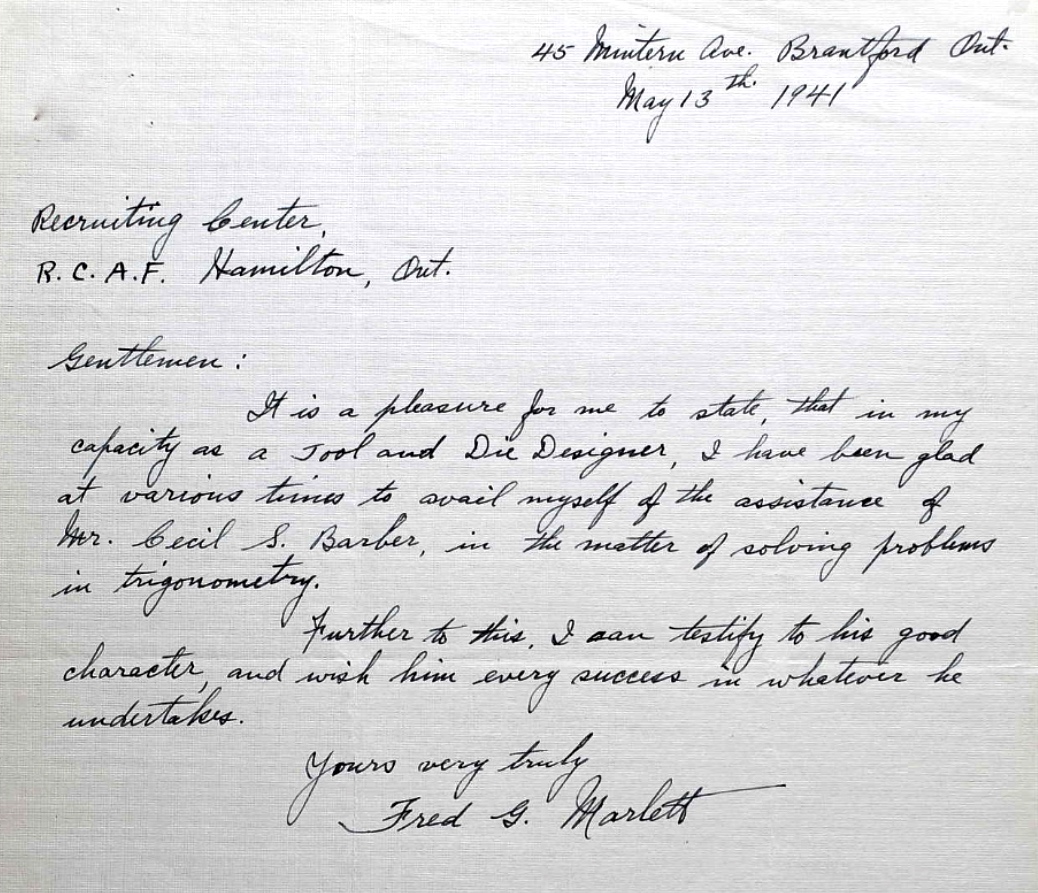 45 Mintern Ave. Brantford Ont.
May 13th. 1941
Recruiting Center,
R.C.A.F. Hamilton, Ont.
Gentlemen:
It is a pleasure for me to state, that in my
capacity as a Tool and Die Designer, I have been glad
at various times to avail myself of the assistance of
Mr. Cecil S. Barber, in the matter of solving problems
in trigonometry.
Further to this, I can testify to his good
character, and wish him every success in whatever he
undertakes.
Yours very truly
Fred G. Marlett